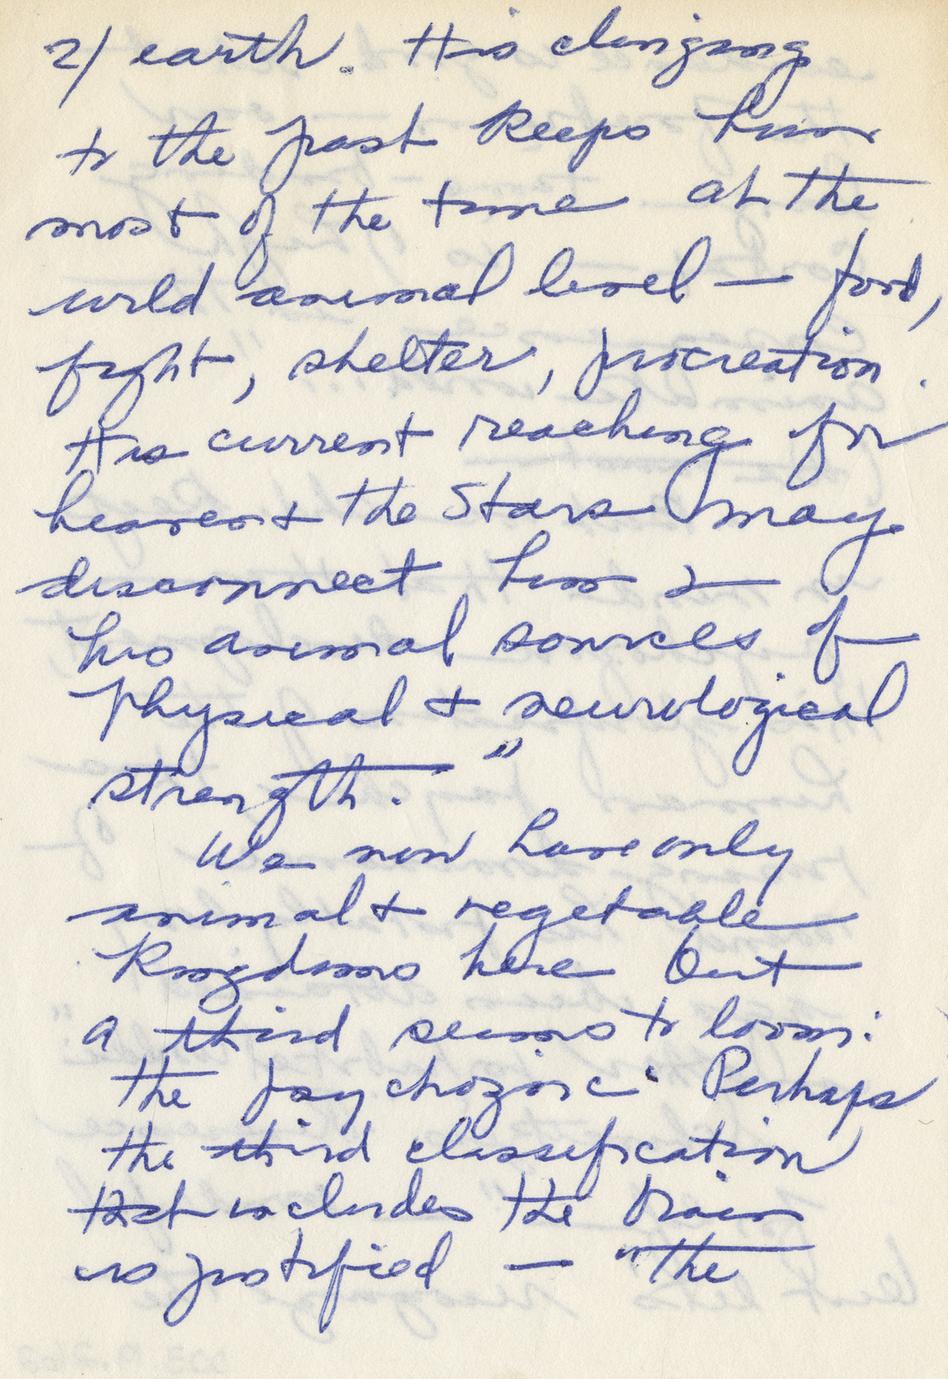 2) earth. His clinging
to the past keeps him
most of the time at the
wild animal level — food,
fight, shelter, procreation.
His current reaching for
heaven & the Stars may
disconnect him &
his animal sources of
physical & neurological
strength."
We now have only
animal & vegetable
Kingdoms here but
a third seems to loom:
the psychozoic. Perhaps
the third classification
that includes the brain
is justified — "the